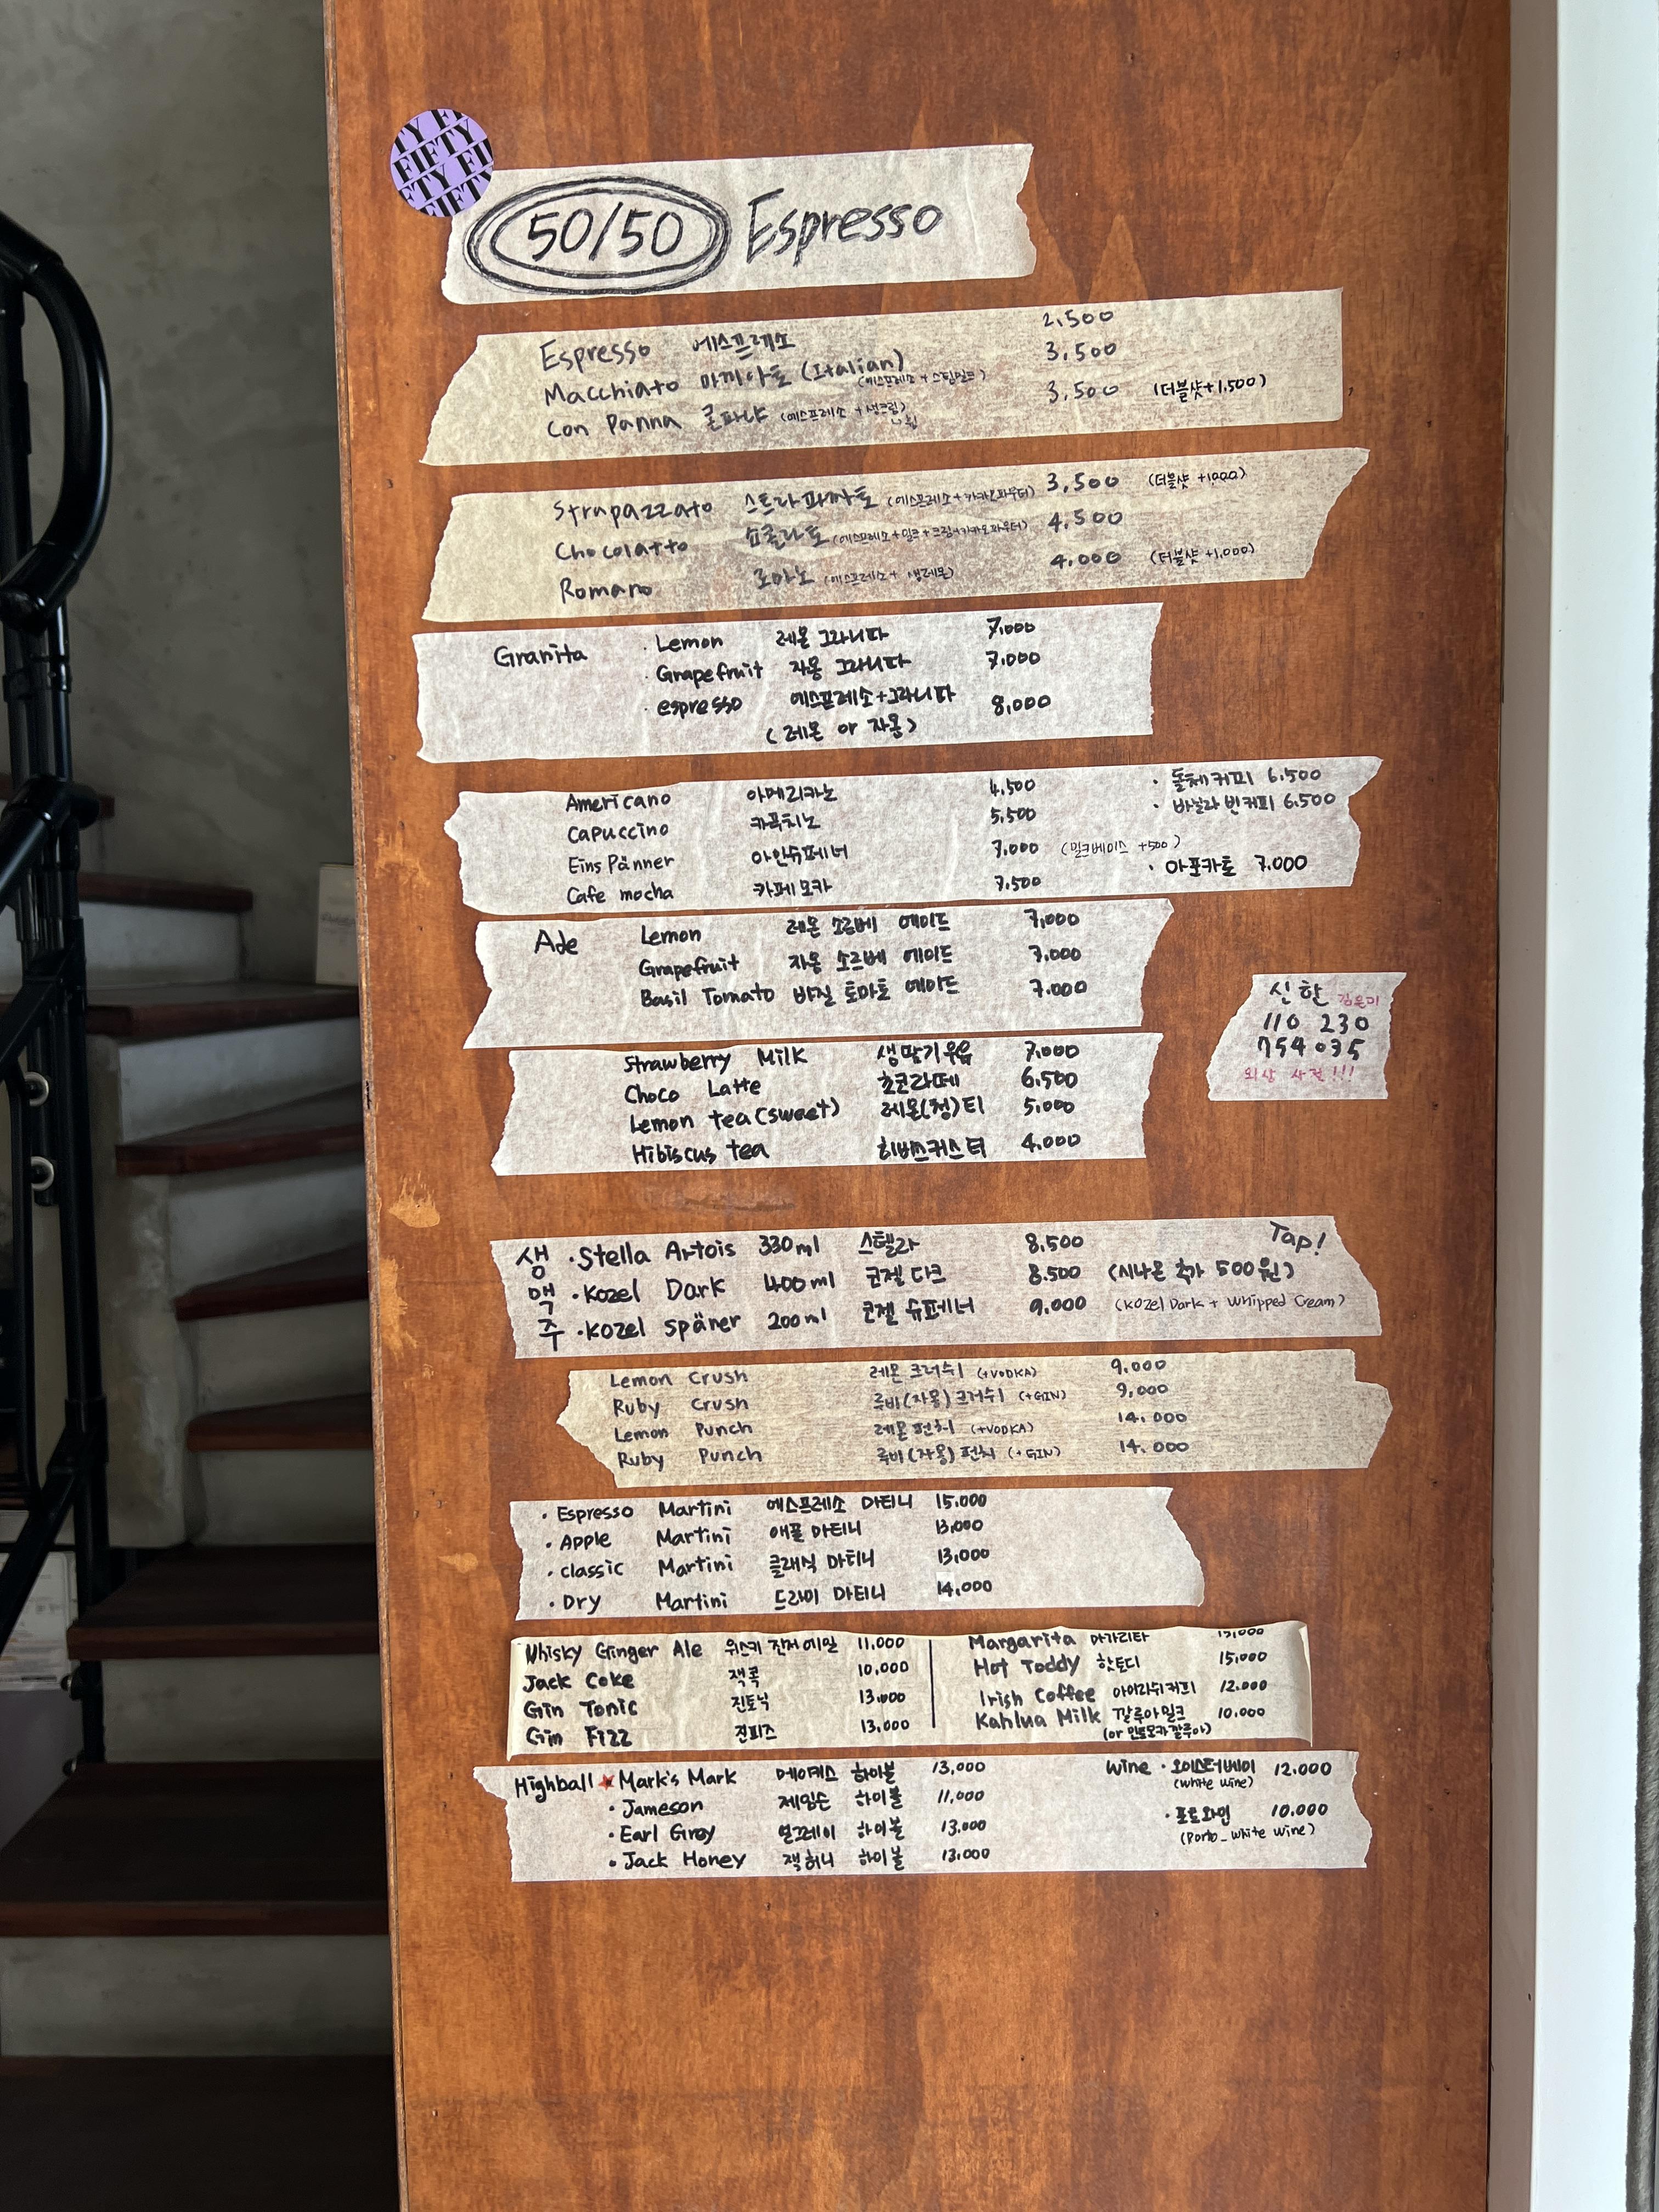 FIFTY
50/50 Espresso
Espresso 에스프레소 2,500
Macchiato 마끼아또 (Italian) (에스프레소 + 스팀밀크) 3,500
Con Panna 콘파냐 (에스프레소 + 생크림) 3,500 (더블샷+1,500)
Strapazzato 스트라파짜토 (에스프레소+카카오파우더) 3,500 (더블샷 +1,000)
Chocolatto 쇼콜라토 (에스프레소+밀크+크림+카카오파우더) 4,500
Romano 로마노 (에스프레소+ 생레몬) 4,000 (더블샷 +1,000)
Granita · Lemon 레몬 그라니따 7,000
· Grapefruit 자몽 그라니따 7,000
· espresso 에스프레소+그라니따 8,000
(레몬 or 자몽)
Americano 아메리카노 4,500 · 돌체커피 6,500
Capuccino 카푹치노 5,500 · 바닐라빈커피 6,500
Eins Pänner 아인슈페너 7,000 (밀크베이스 +500)
Cafe mocha 카페모카 7,500 · 아포카토 7,000
Ade Lemon 레몬 소르베 에이드 7,000
Grapefruit 자몽 소르베 에이드 7,000
Basil Tomato 바질 토마토 에이드 7,000
신한 김은미
110 230
754035
외상 사절!!!
Strawberry Milk 생딸기우유 7,000
Choco Latte 초코라떼 6,500
Lemon tea(sweet) 레몬(청)티 5,000
Hibiscus tea 히비스커스티 4,000
생맥주 Tap!
· Stella Artois 330ml 스텔라 8,500
· Kozel Dark 400ml 코젤 다크 8,500 (시나몬 추가 500원)
· Kozel späner 200ml 코젤 슈페너 9,000 (Kozel Dark + Whipped Cream)
Lemon Crush 레몬 크러쉬 (+VODKA) 9,000
Ruby Crush 루비(자몽)크러쉬 (+GIN) 9,000
Lemon Punch 레몬펀치 (+VODKA) 14,000
Ruby Punch 루비(자몽)펀치 (+GIN) 14,000
· Espresso Martini 에스프레소 마티니 15,000
· Apple Martini 애플 마티니 13,000
· classic Martini 클래식 마티니 13,000
· Dry Martini 드라이 마티니 14,000
Whisky Ginger Ale 위스키 진저에일 11,000
Jack Coke 잭콕 10,000
Gin Tonic 진토닉 13,000
Gin Fizz 진피즈 13,000
Margarita 마가리타 15,000
Hot Toddy 핫토디 15,000
Irish Coffee 아이리쉬커피 12,000
Kahlua Milk 깔루아밀크 10,000
(or 민트모카깔루아)
Highball ★ Mark's Mark 메이커스 하이볼 13,000
· Jameson 제임슨 하이볼 11,000
· Earl Grey 얼그레이 하이볼 13,000
· Jack Honey 잭허니 하이볼 13,000
Wine · 오이스터베이 12,000
(white wine)
· 포르토와인 10,000
(Porto_white wine)